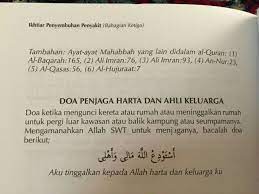 Ikhtiar Penyembuhan Penyakit (Bahagian Ketiga)
Tambahan: Ayat-ayat Mahabbah yang lain didalam al-Quran: (1)
Al-Baqarah:165, (2) Ali Imran:76, (3) Ali Imran:93, (4) An-Nur:23,
(5) Al-Qasas:56, (6) Al-Hujuraat:7
DOA PENJAGA HARTA DAN AHLI KELUARGA
Doa ketika mengunci kereta atau rumah atau meninggalkan rumah
untuk pergi luar kawasan atau balik kampung atau seumpamanya.
Mengamanahkan Allah SWT untuk menjaganya, bacalah doa
berikut;
أَسْتَوْدِعُ اللّٰهَ مَالِى وَأَهْلِى
Aku tinggalkan kepada Allah harta dan keluarga ku